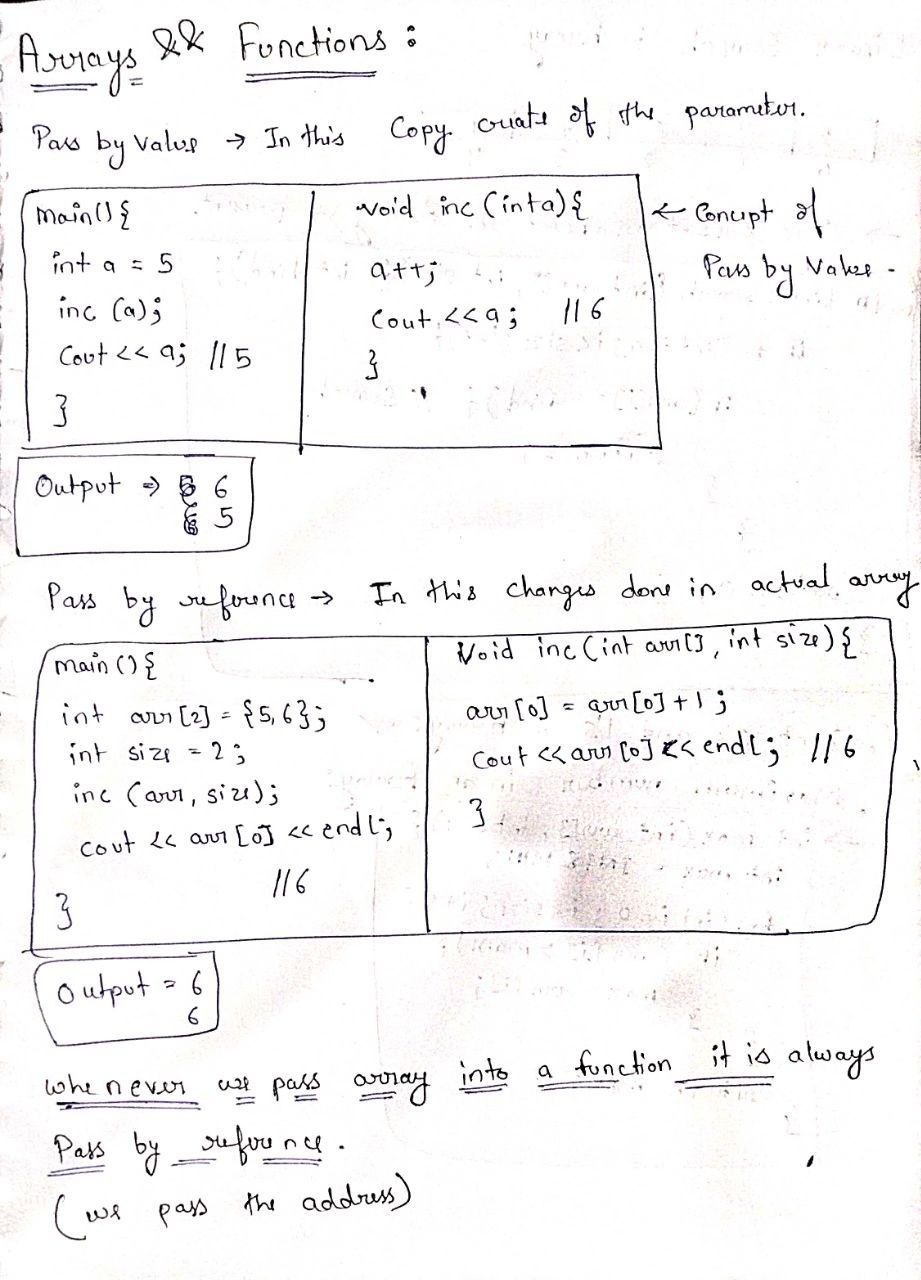 Arrays && Functions :
Pass by Value → In this Copy create of the parameter.
main() {
int a = 5
inc (a);
Cout << a; //5
}
void inc (int a) {
a++;
Cout << a; //6
}
← Concept of
Pass by Value -
Output ⇒ 6
5
Pass by reference → In this changes done in actual array
main () {
int arr [2] = {5,6};
int size = 2;
inc (arr, size);
cout << arr [0] << endl;
//6
}
Void inc (int arr[], int size) {
arr [0] = arr[0] + 1;
Cout << arr [0] << endl; //6
}
Output = 6
6
whenever we pass array into a function it is always
Pass by reference.
(we pass the address)